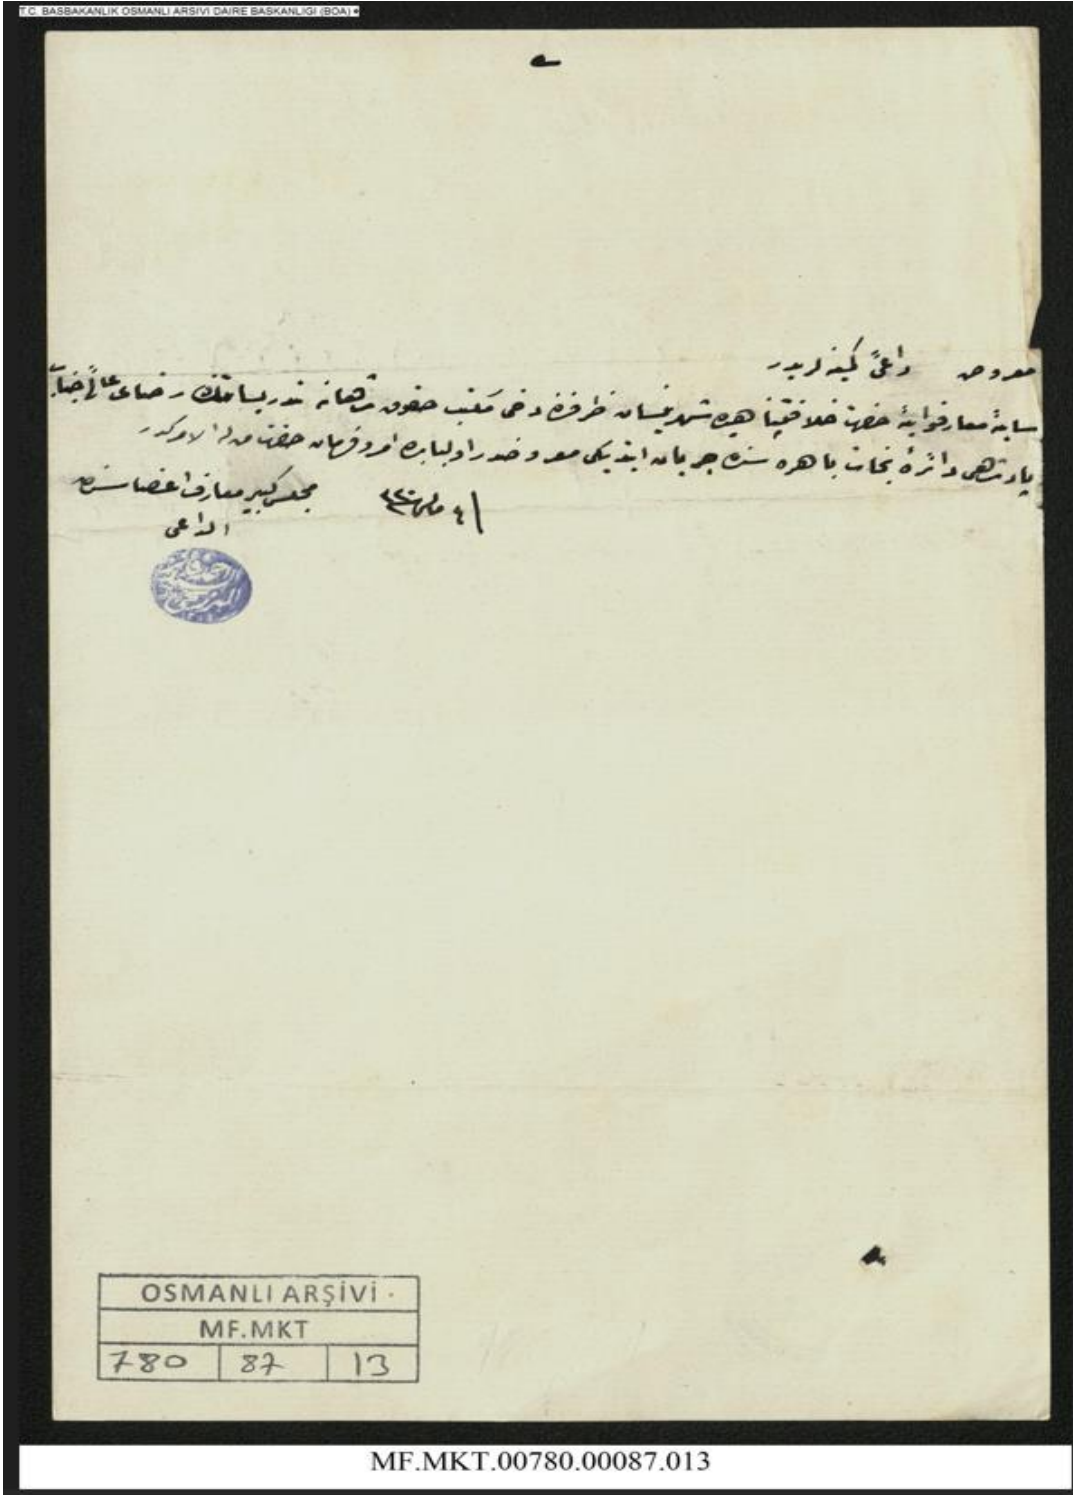 T.C. BASBAKANLIK OSMANLI ARSIVI DAIRE BASKANLIGI (BOA)
معروض داعئ كمينه لريدر
سايۀ معارفوايۀ حضرت خلافتپناهيده شهر نيسان ظرفنده دخى مكتب حقوق شاهانه تدريساتنك رضاى عالئ جناب
پادشاهى دائرۀ باهره سنده جريان ايتديكى معروضدر اولبابده امر وفرمان حضرت من له الامركدر
٤ مايس ٣٢٠ مجلس كبير معارف اعضاسندن
الداعى
OSMANLI ARŞİVİ
MF.MKT
780 87 13
MF.MKT.00780.00087.013